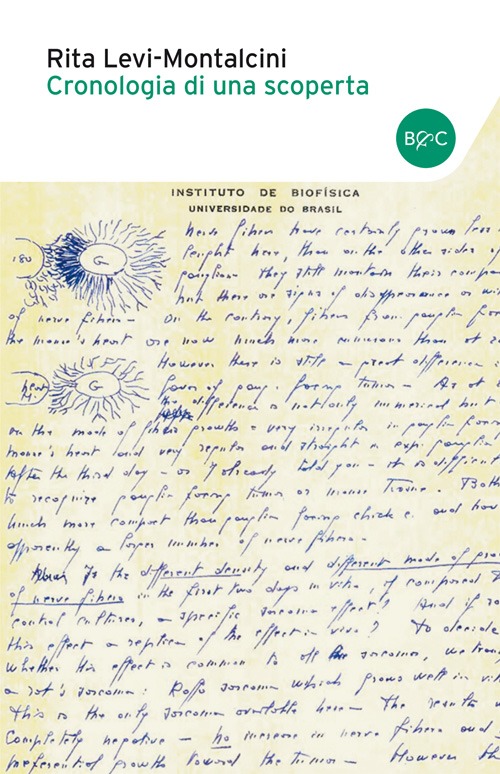 Rita Levi-Montalcini
Cronologia di una scoperta
B&C
INSTITUTO DE BIOFÍSICA
UNIVERSIDADE DO BRASIL
nerve fibers have certainly grown less
length here, than on the other sides of
ganglion. They still maintain their
but there are signs of disappearance or
180
G
of nerve fibers — On the contrary, fibers from ganglia
the mouse's heart are now much more numerous than
However there is still a great difference
heart
M.
G
favor of gang. facing tumor — As
the difference is not only numerical but
on the mode of fiber growth = very irregular in ganglia
mouse's heart and very regular and straight in exp. ganglia
After the third day — as I already told you — it is difficult
to recognize ganglia facing tumor or mouse Tissue. Both
much more compact than ganglia facing chick e. and
apparently a larger number of nerve fibers —
Is the different density and different mode of
of nerve fibers in the first two days in vitro, if compared
control cultures, a specific sarcoma effect? And if
this effect a replica of the effect in vivo? To decide
whether this effect is common to all sarcomas, we
a rat's sarcoma: sarcoma which grows well in
This is the only sarcoma available here — The results
Completely negative — no increase in nerve fibers and
preferential growth toward the tumor — However